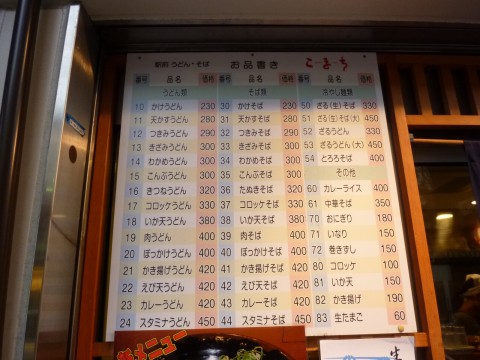 駅前 うどん・そば お品書き こまち
番号 品名 価格 番号 品名 価格 番号 品名 価格
うどん類 そば類 冷やし麺類
10 かけうどん 230 30 かけそば 230 50 ざる(生)そば 330
11 天かすうどん 280 31 天かすそば 280 51 ざる(生)そば(大) 450
12 つきみうどん 290 32 つきみそば 290 52 ざるうどん 330
13 きざみうどん 300 33 きざみそば 300 53 ざるうどん(大) 450
14 わかめうどん 300 34 わかめそば 300 54 とろろそば 400
15 こんぶうどん 300 35 こんぶそば 300 その他
16 きつねうどん 320 36 たぬきそば 320 60 カレーライス 400
17 コロッケうどん 330 37 コロッケそば 330 61 中華そば 350
18 いか天うどん 380 38 いか天そば 380 70 おにぎり 180
19 肉うどん 400 39 肉そば 400 71 いなり 150
20 ぼっかけうどん 400 40 ぼっかけそば 400 72 巻きずし 150
21 かき揚げうどん 420 41 かき揚げそば 420 80 コロッケ 100
22 えび天うどん 420 42 えび天そば 420 81 いか天 150
23 カレーうどん 420 43 カレーそば 420 82 かき揚げ 190
24 スタミナうどん 450 44 スタミナそば 450 83 生たまご 60
メニュー
生